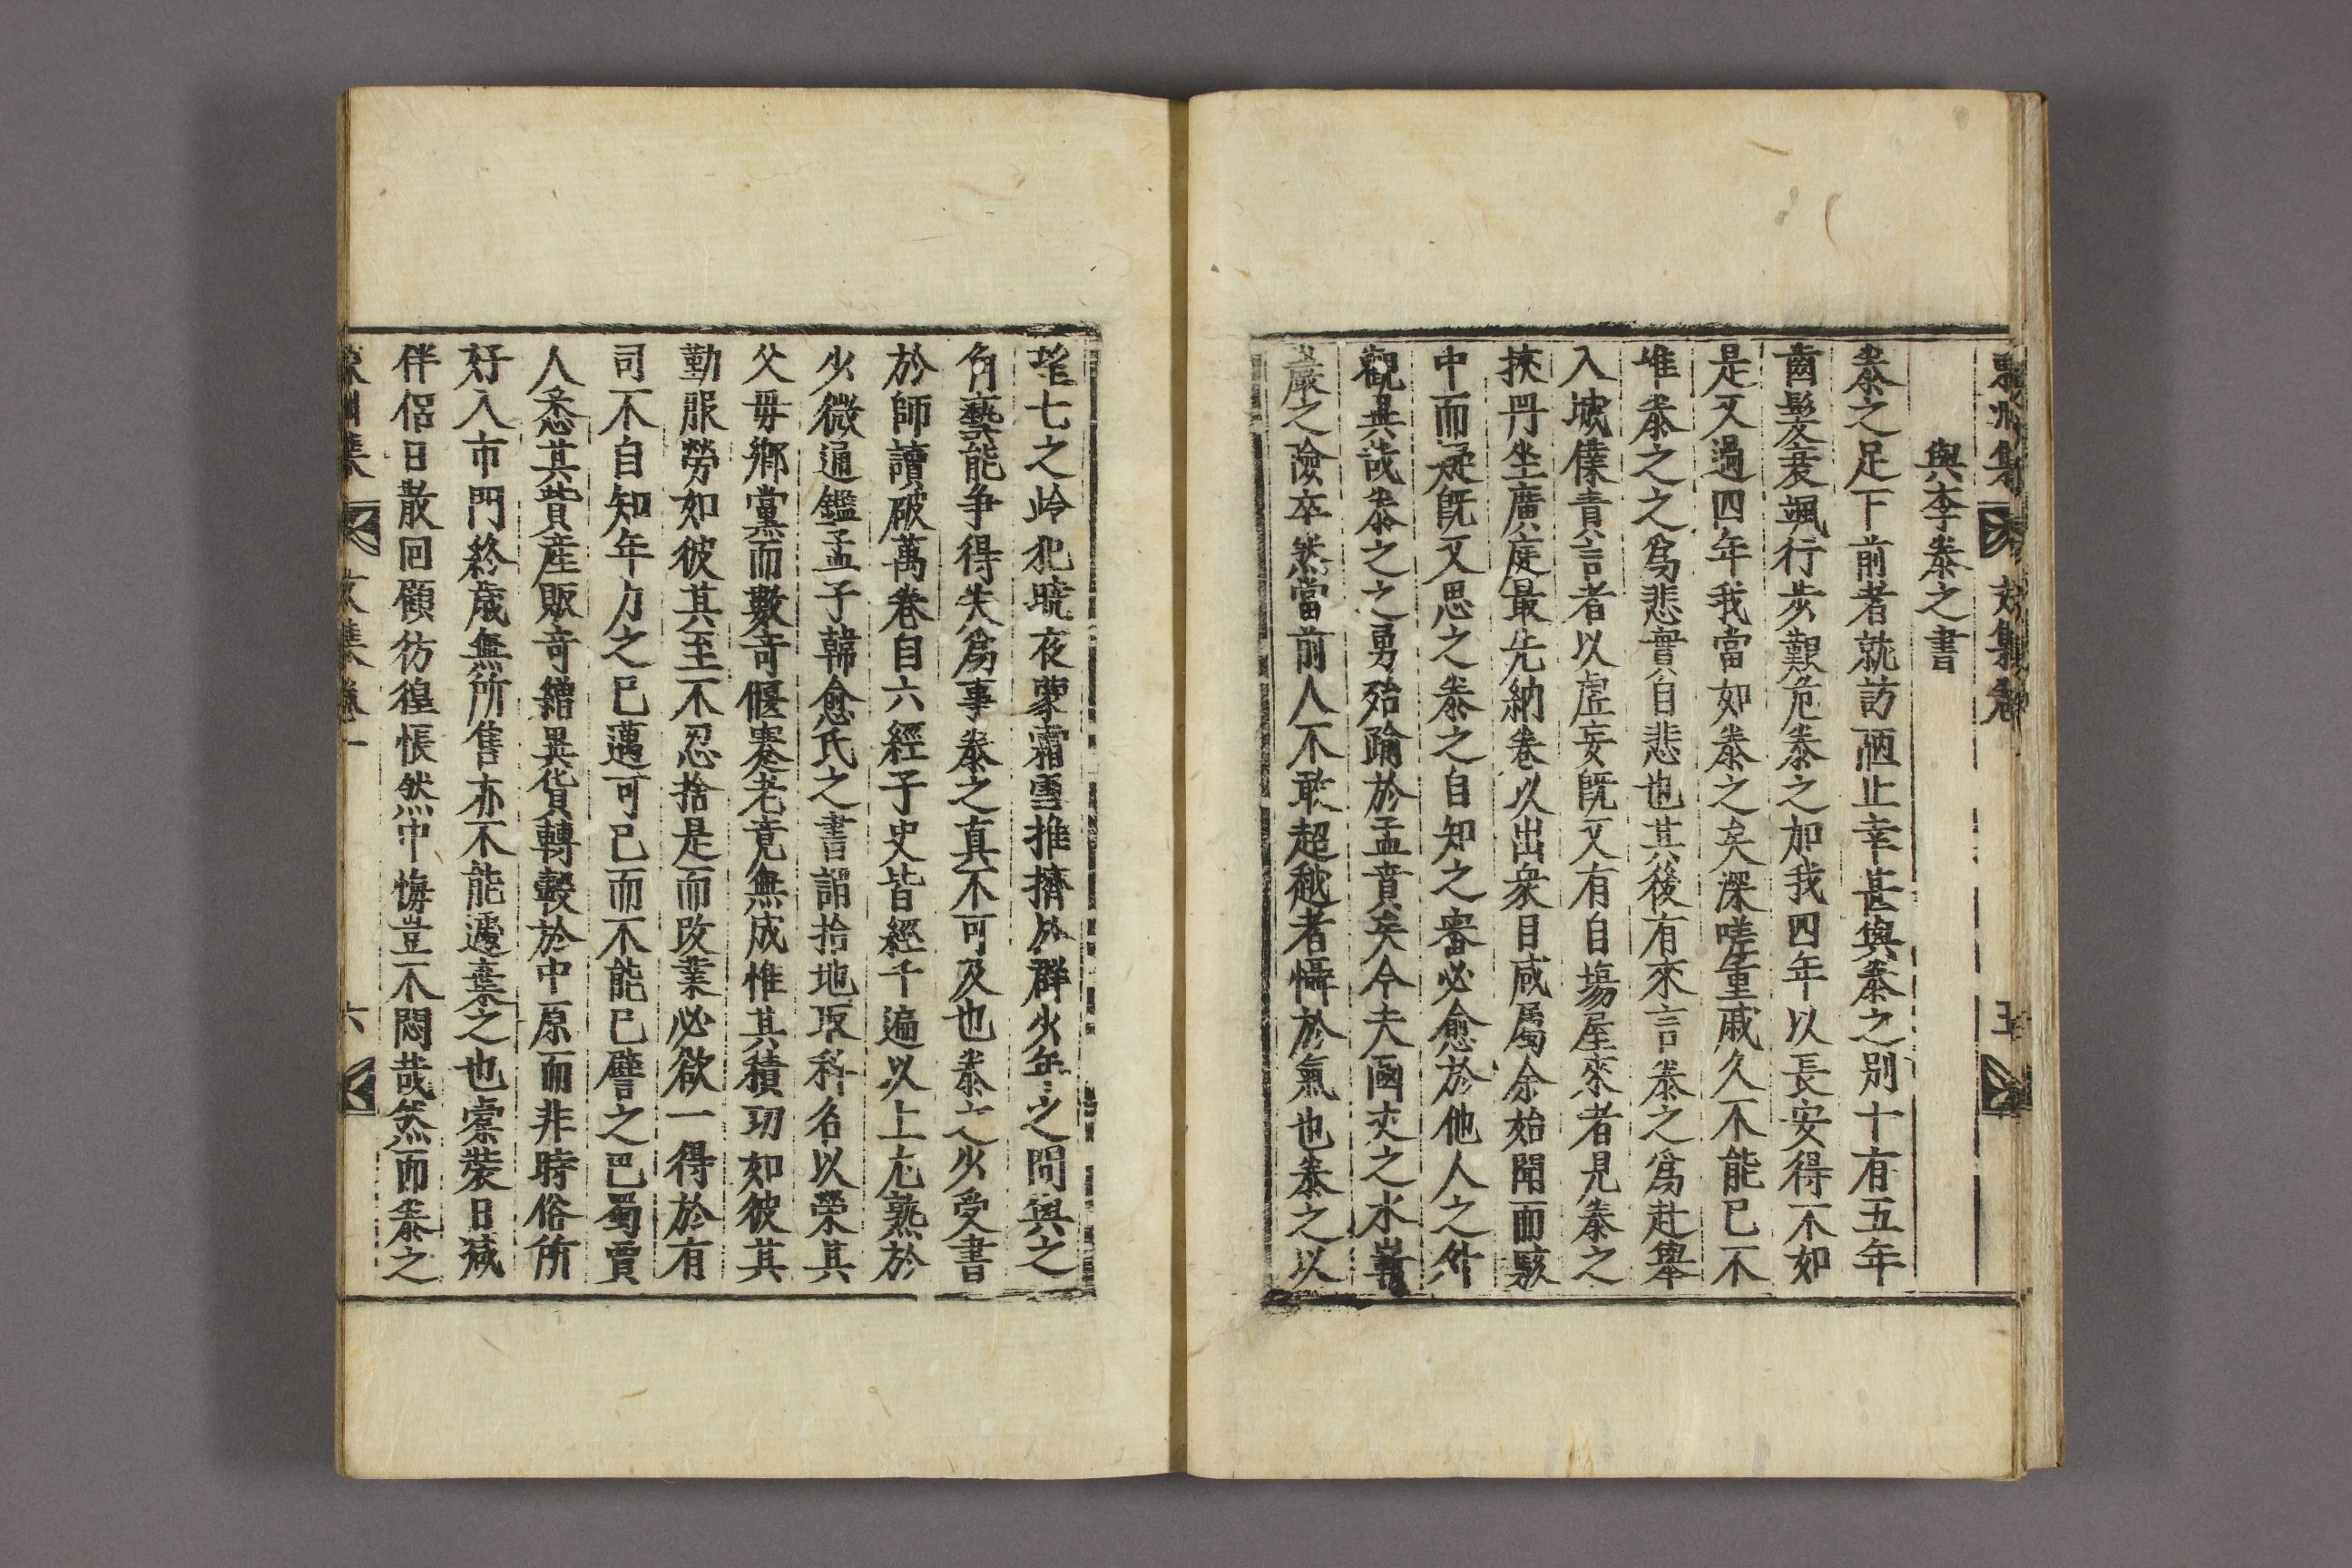 與李泰之書
泰之足下前者就訪陋止幸甚與泰之別十有五年
齒髮衰颯行步艱危泰之加我四年以長安得不如
是又過四年我當如泰之矣深嗟重戚久不能已不
唯泰之之爲悲實自悲也其後有來言泰之爲赴擧
入城傣責言者以虛妄旣又有自塲屋來者見泰之
挾冊坐廣庭最先納卷以出衆目咸屬余始聞而駭
中而疑旣又思之泰之自知之審必愈於他人之外
觀異哉泰之之勇殆踰於孟賁矣今夫函夾之水
巖之險卒然當前人不敢超越者懾於氣也泰之以
望七之岭犯曉夜蒙霜雪推擠於群少年之間與之
角藝能爭得失爲事泰之真不可及也泰之少受書
於師讀破萬卷自六經子史皆經千遍以上尤熟於
少微通鑑孟子韓愈氏之書謂拾地取科名以榮其
父毋鄉黨而數奇偃蹇老竟無成惟其積功如彼其
勤服勞如彼其至不忍捨是而改業必欲一得於有
司不自知年力之已邁可已而不能已譬之巴蜀賈
人悉其貲産販奇繒異貨轉轂於中原而非時俗所
好入市門終歲無所售亦不能遽棄之也槖裝日减
伴侶日散回顧彷徨悵然中悔豈不悶哉然而泰之
六